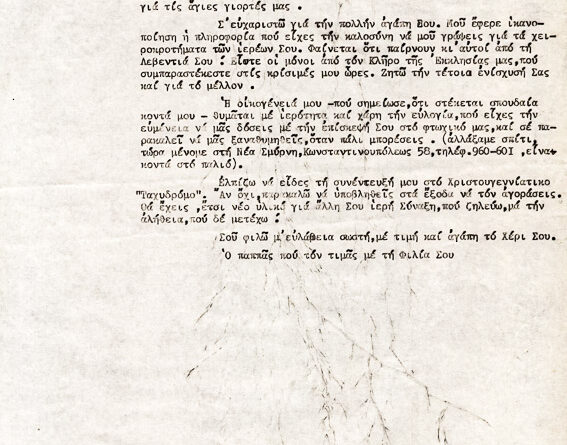 γιά τίς ἅγιες γιορτές μας .
Σ'εὐχαριστῶ γιά τήν πολλήν ἀγάπη Σου. Μοῦ ἔφερε ἱκανο-
ποίηση ἡ πληροφορία πού εἶχες τήν καλοσύνη νά μοῦ γράψεις γιά τά χει-
ροκροτήματα τῶν ἱερέων Σου. Φαίνεται ὅτι παίρνουν κι'αὐτοί ἀπό τή
Λεβεντιά Σου ! Εἶστε οἱ μόνοι ἀπό τόν Κλῆρο τῆς Ἐκκλησίας μας,πού
συμπαραστέκεστε στίς κρίσιμές μου ὧρες. Ζητῶ τήν τέτοια ἐνίσχυσή Σας
καί γιά τό μέλλον .
Ἡ οἰκογένειά μου -πού σημείωσε,ὅτι στέκεται σπουδαῖα
κοντά μου - θυμᾶται μέ ἱερότητα καί χάρη τήν εὐλογία,πού εἶχες τήν
εὐμένεια νά μᾶς δόσεις μέ τήν ἐπίσκεψή Σου στό φτωχικό μας,καί σέ πα-
ρακαλεῖ νά μᾶς ξαναθυμηθεῖς,ὅταν πάλι μπορέσεις . (ἀλλάξαμε σπίτι,
τώρα μένομε στή Νέα Σμύρνη,Κωνσταντινουπόλεως 58,τηλέφ.960-601 ,εἶναι
κοντά στό παλιό).
Ἐλπίζω νά εἶδες τή συνέντευξή μου στό Χριστουγεννιάτικο
"Ταχυδρόμο". Ἄν ὄχι,παρακαλῶ νά ὑποβληθεῖς στά ἔξοδα νά τόν ἀγοράσεις.
Θά ἔχεις ,ἔτσι νέο ὑλικό γιά ἄλλη Σου ἱερή Σύναξη,πού ζηλεύω,μά τήν
ἀλήθεια,πού δέ μετέχω !
Σοῦ φιλῶ μ'εὐλάβεια σωστή,μέ τιμή καί ἀγάπη τό Χέρι Σου.
Ὁ παππᾶς πού τόν τιμᾶς μέ τή Φιλία Σου